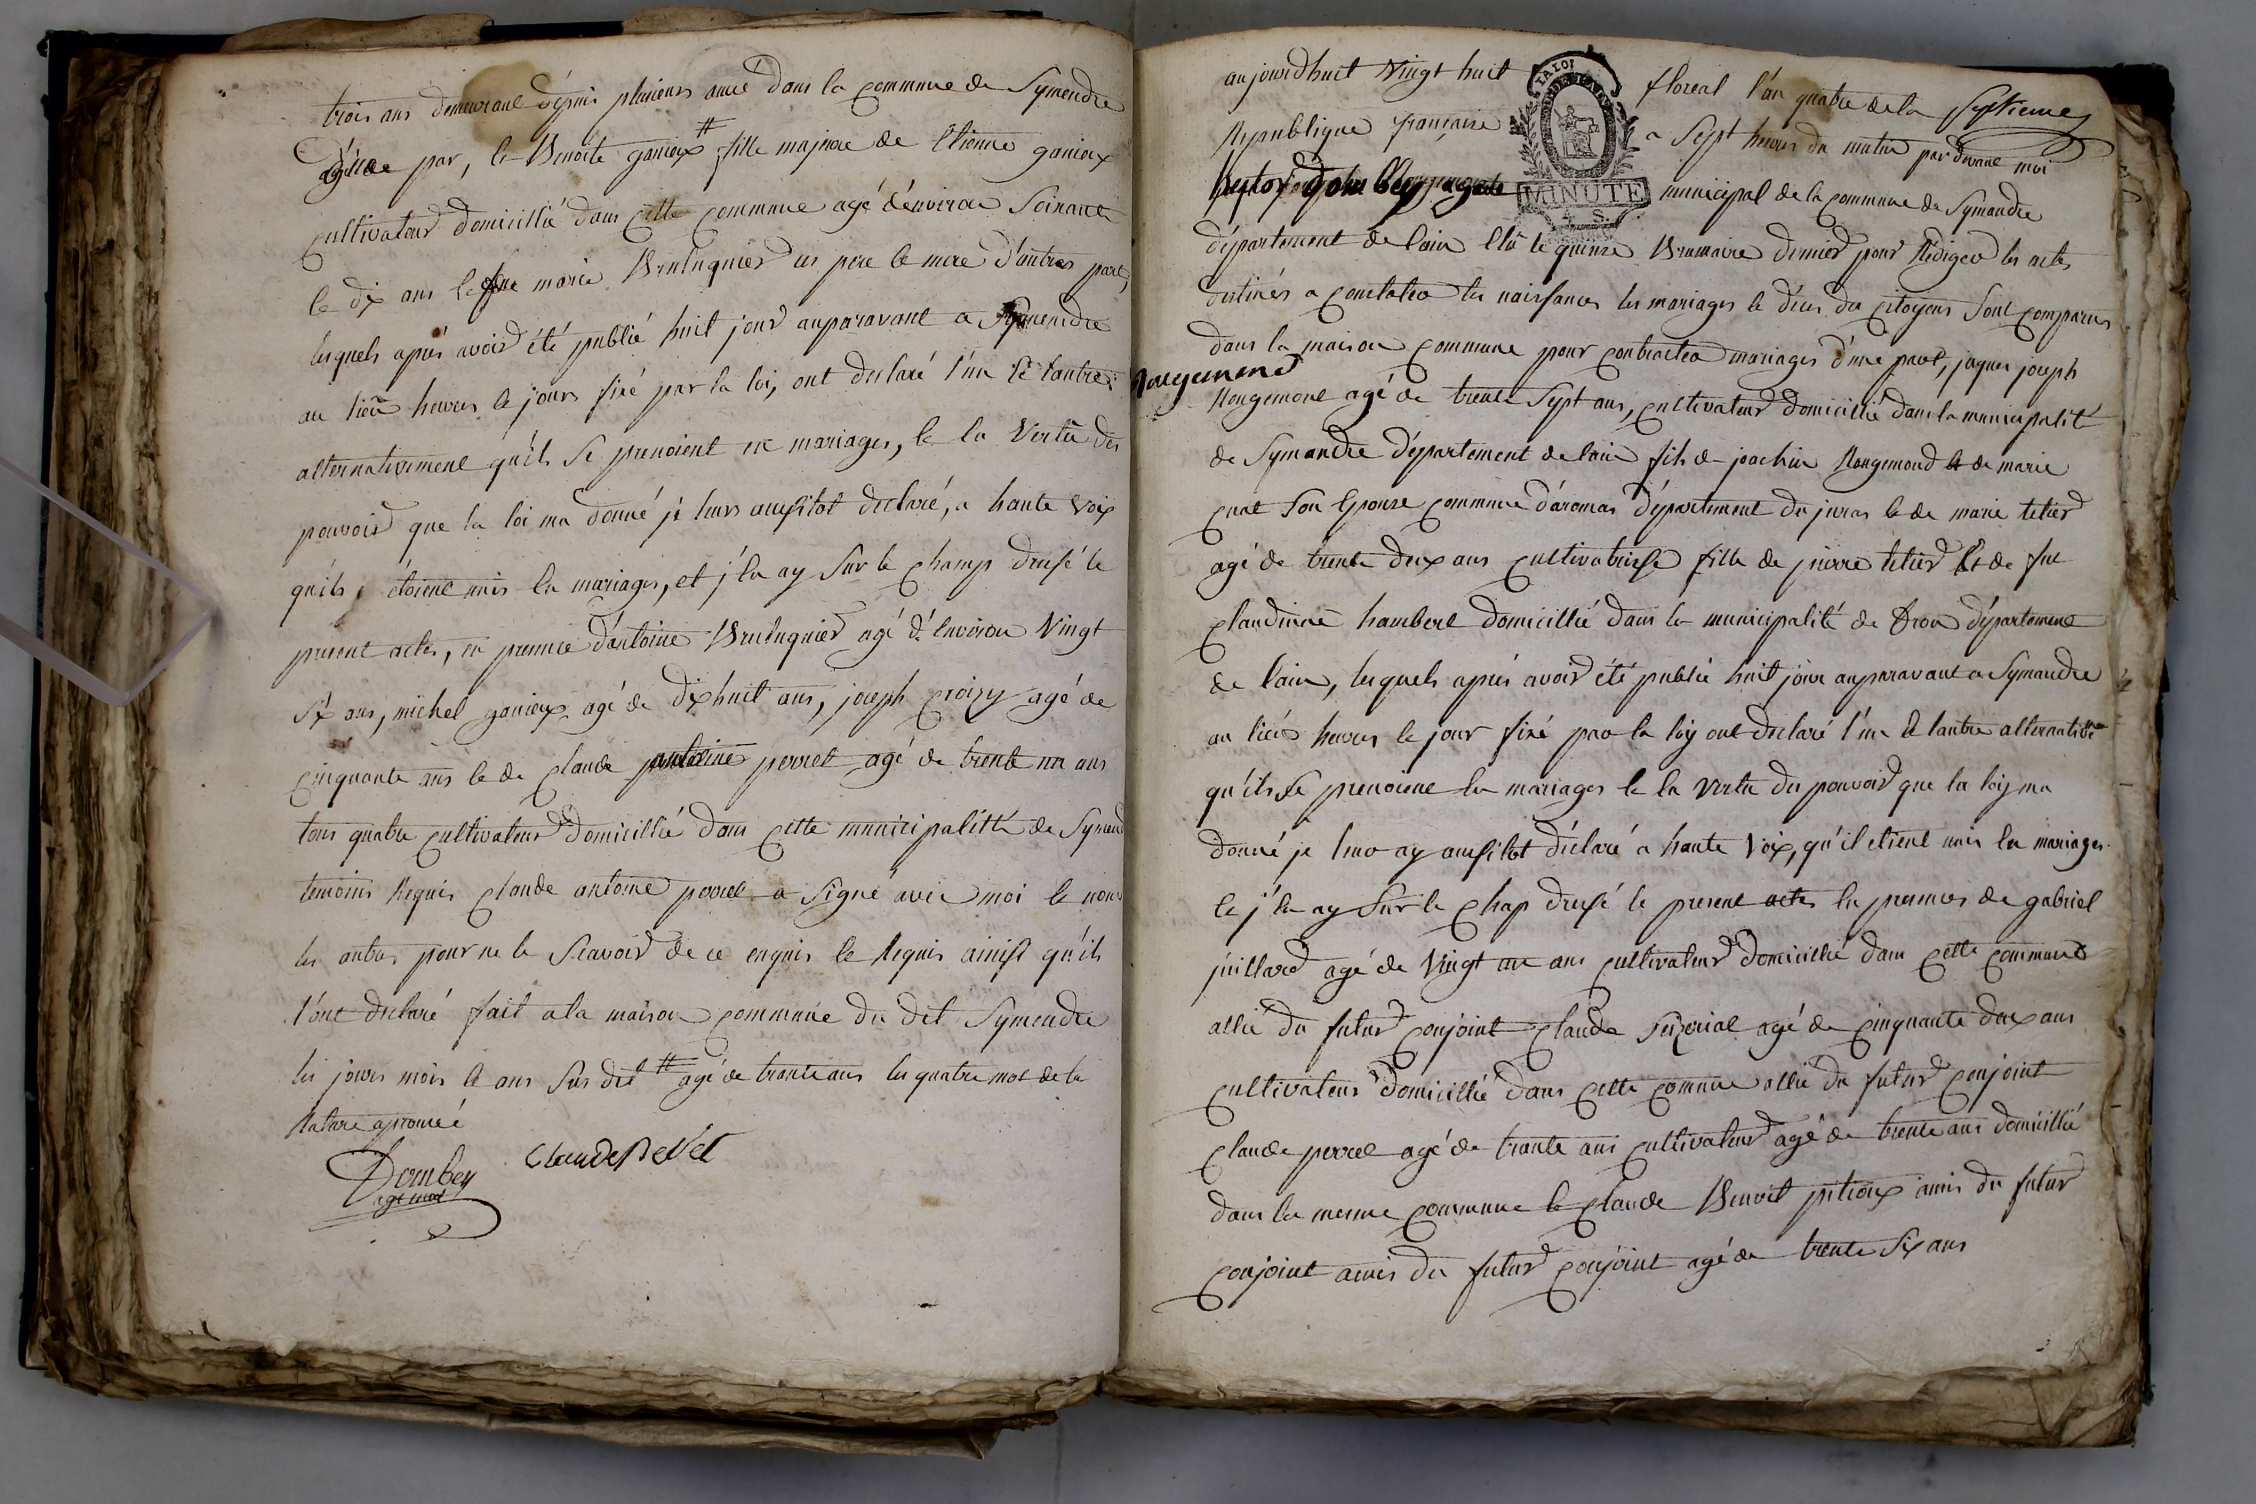 trois ans demeurant dépuis plusieurs année dans la commune de Symendre
d'une par, le Benoite ganieux # fille majeure de Etienne ganieux
cultivateur domicillié dans cette commune agé d'énviron Soixante
le dix ans le feue marie Brulnquier ses pere le mere d'autres part,
lesquels aprés avoir été publié huit jour auparavant a Symendre
au lieu heures le jours fixé par la loi, ont déclaré l'un le lautre
alternativement qu'ils Se prenoient en mariages, le la Vertu des
pouvoir que la loi ma donné je leurs aussitot déclaré, a haute Voix
qu'ils étoient unis en mariages, et j'en ay Sur le champs dressé le
present actes, en presence d'antoine Brulnquier agé d'environ Vingt
Six ans, michel ganieux agé de Dixhuit ans, joseph croizy agé de
cinquante ans le de claude antoine perret agé de trente un ans
tous quatre cultivateur domicillié dans cette municipalitté de Symend
temoins Requis claude antoine perret a Signé avec moi le non
les autres pour ne le Scavoir de ce enquis le Requis ainsi qu'ils
l'ont déclaré fait a la maison commune du dit Symendre
les jours mois le ans Sus dit # agé de trante ans les quatre mot de la
Rature aprouvé
Dombey Claude Pevet
agt mual
aujourdhuit Vingt huit floreal l'an quatre de la Septieme
Republique françaire a Sept heures du matin par devant moi
LA LOI
MINUTE
4 S.
Dombey agent municipal de la commune de Symandre
département de l'ain Elû le quinze Brumaire dernier pour Rédiger les actes
destinés a constater les naissances les mariages le décès des citoyens Sont comparus
dans la maison commune pour contracter mariages d'une part, jaques joseph
Rougemond
Rougemont agé de trente Sept ans, cultivateur domicillié dans la municipalité
de Symandre département de lain fils de joachin Rougemond et de marie
cuat Son Epouse commune d'aromas département du juras le de marie tetier
agé de trente deux ans cultivatrisse fille de pierre tetier et de fue
claudinne humbert domicillié dans la municipalité de Drom département
de lain, lesquels aprés avoir été publié huit jour auparavant a Symandre
au lieu heures le jour fixé par la loy ont déclaré l'un et lautre alternative
qu'ils Se prenoient en mariages le la Vertu des pouvoir que la loy ma
donné je leur ay aussitot déclaré a haute Voix, qu'il etient unis en mariages
le j'en ay Sur le chap dressé le present actes en presences de gabriel
juillard agé de Vingt un ans cultivateur domicillié dans cette commune
allié du futur conjoint claude agé de cinquante deux ans
cultivateur domicillié dans cette comune allié du futur conjoint
claude perret agé de trante ans cultivateur agé de trente ans domicillié
dans la mesme commune le claude Benoit pitioux amis du futur
conjoint amis du futur conjoint agé de trente Six ans